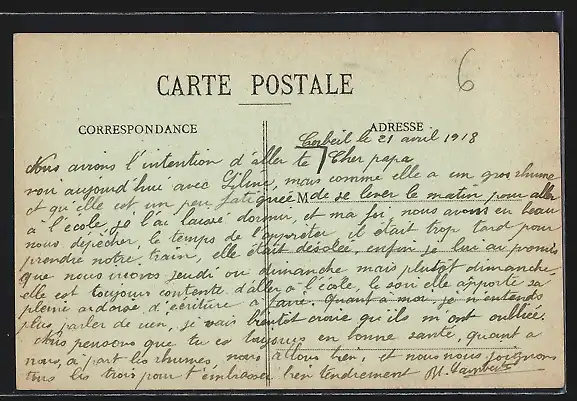 6
CARTE POSTALE
CORRESPONDANCE
ADRESSE
Corbeil le 21 avril 1918
Cher papa
Nous avions l'intention d'aller te
voir aujourd'hui avec mais comme elle a un gros rhume
et qu'elle est un peu fatiguée M de se lever le matin pour aller
à l'école, je l'ai laissé dormir, et ma foi, nous avons eu beau
nous dépêcher, le temps de l'apprêter, il était trop tard pour
prendre notre train, elle était désolée, enfin je lui ai promis
que nous irions jeudi ou dimanche mais plutôt dimanche
elle est toujours contente d'aller à l'école, le soir elle apporte sa
pleine ardoise d'écriture à faire. Quant à moi, je n'entends
plus parler de rien, je vais bientôt croire qu'ils m'ont oubliée.
Nous pensons que tu es toujours en bonne santé, quant à
nous, à part les rhumes, nous allons bien, et nous nous joignons
tous les trois pour t'embrasser bien tendrement M.